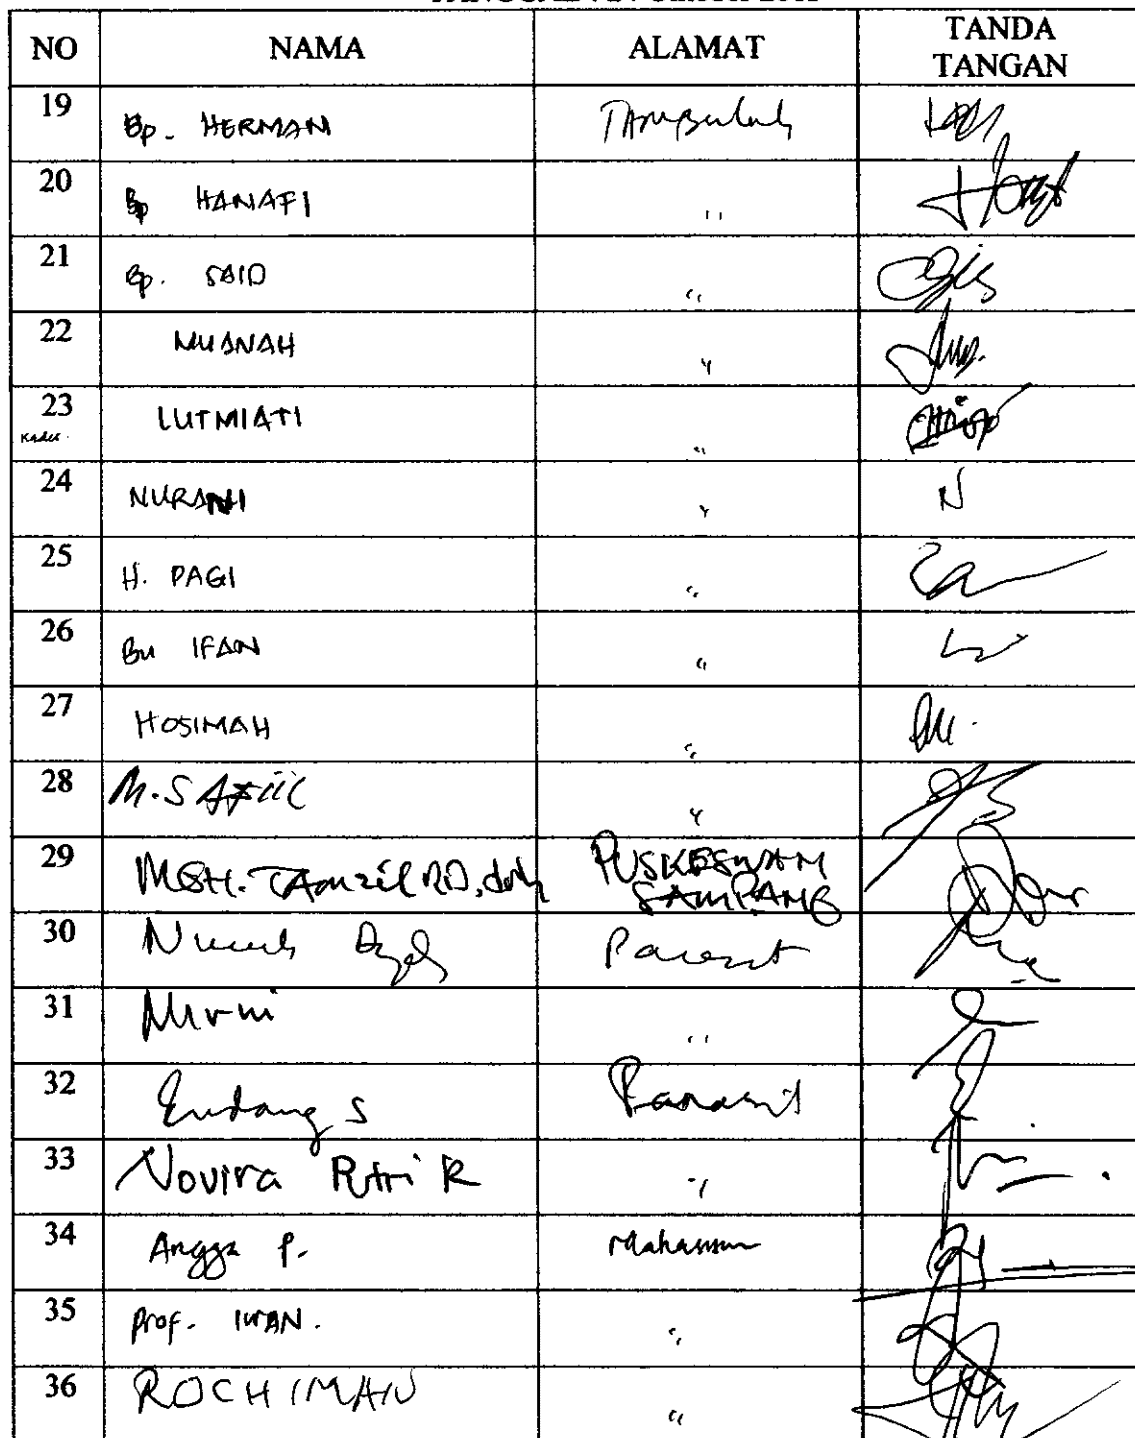 NO NAMA ALAMAT TANDA TANGAN
19 Bp. HERMAN
20 Bp HANAFI "
21 Bp. SAID "
22 MUANAH "
23 LUTMIATI "
Kader.
24 NURANI "
25 H. PAGI "
26 Bu IFAN "
27 HOSIMAH "
28 M. SAFIIL "
29 MOH. TAMZIL RD, drh PUSKESWAN SAMPANG
30 Parasit
31 Murni "
32 Endang S Parasit
33 Novira Putri R "
34 Angga P. Mahasiswa
35 Prof. IWAN. "
36 ROCHIMAN "